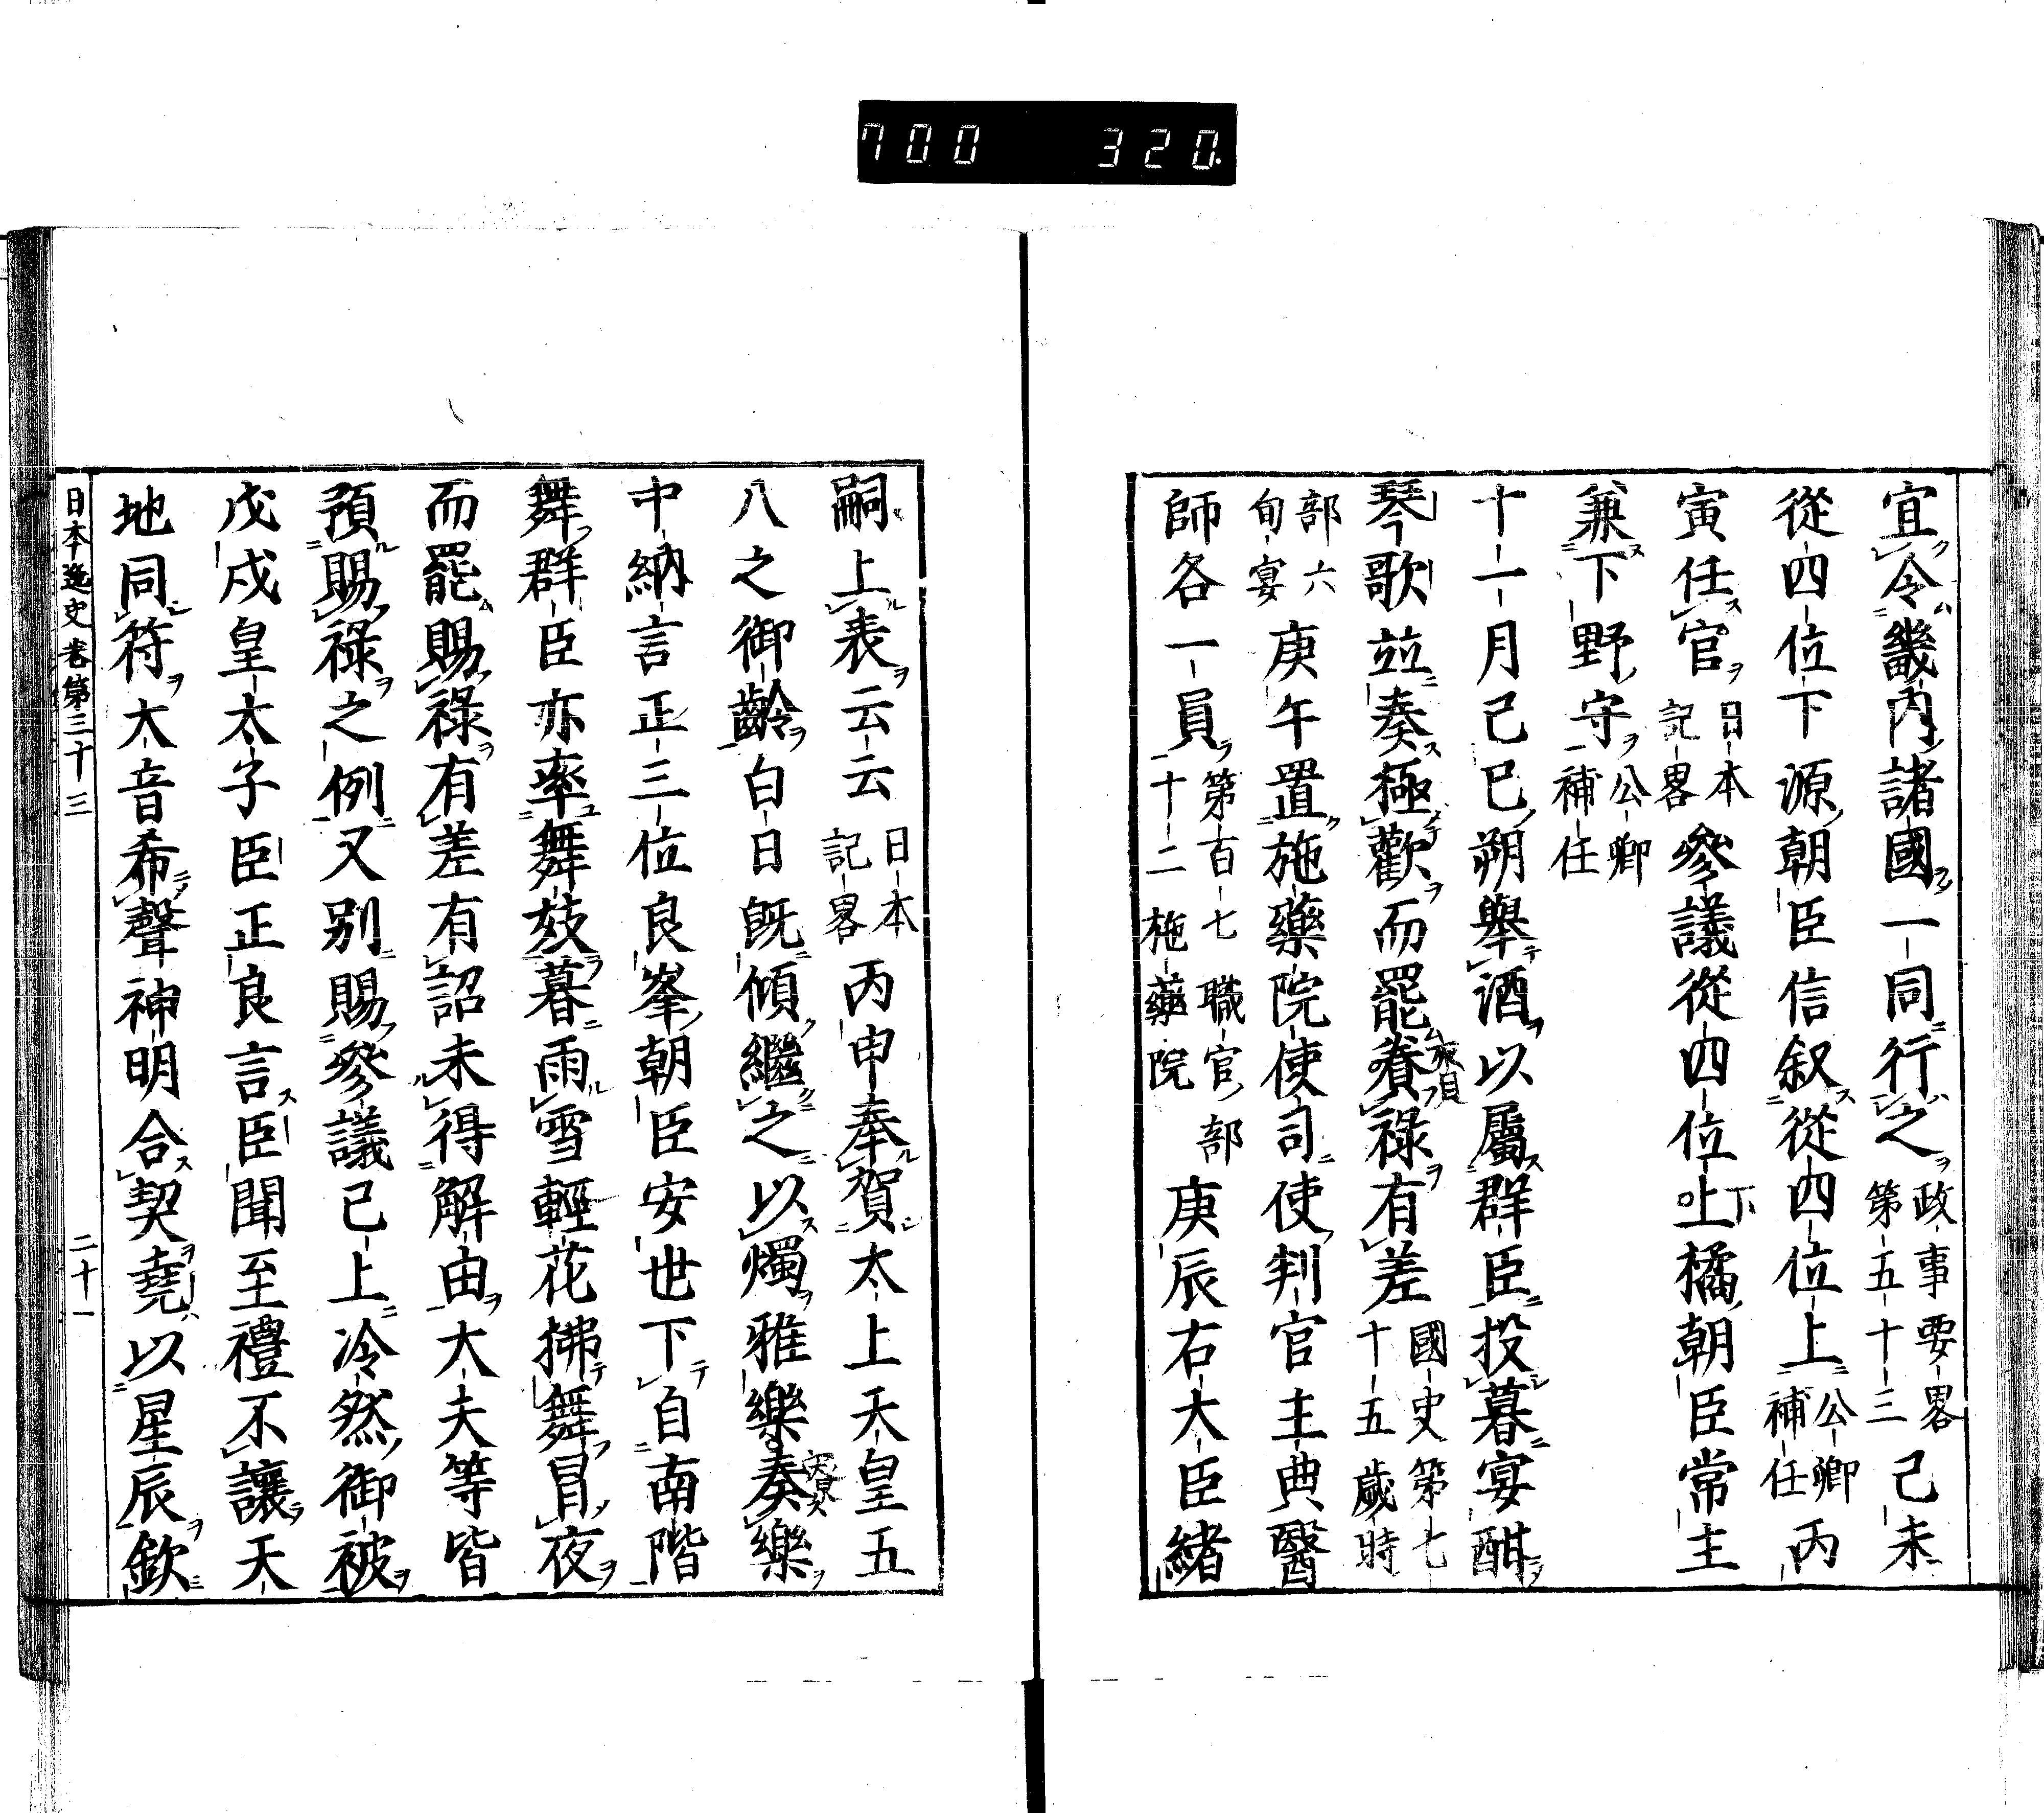 700 320.
宜令畿内諸國一同行之政事要畧第五十三己未
從四位下源朝臣信叙從四位上公卿補任丙
寅任官日本記畧參議從四位上下橘朝臣常主
兼下野守公卿補任
十一月己巳朔舉酒以屬群臣投暮宴酣
琴歌並奏極歡而罷賚祿有差國史第七十五歲時
部六旬宴庚午置施藥院使司使判官主典醫
師各一員第百七職官部十二施藥院庚辰右大臣緒
嗣上表云云日本記畧丙申奉賀太上天皇五
八之御齡白日既傾繼之以燭雅樂奏樂
中納言正三位良峯朝臣安世下自南階
舞群臣亦率舞妓暮雨雪輕花拂舞冐夜
而罷賜祿有差有詔未得解由大夫等皆
預賜祿之例又別賜參議已上冷然御被
戊戌皇太子臣正良言臣聞至禮不讓天
地同符大音希聲神明合契堯以星辰欽
日本逸史卷第三十三 二十一